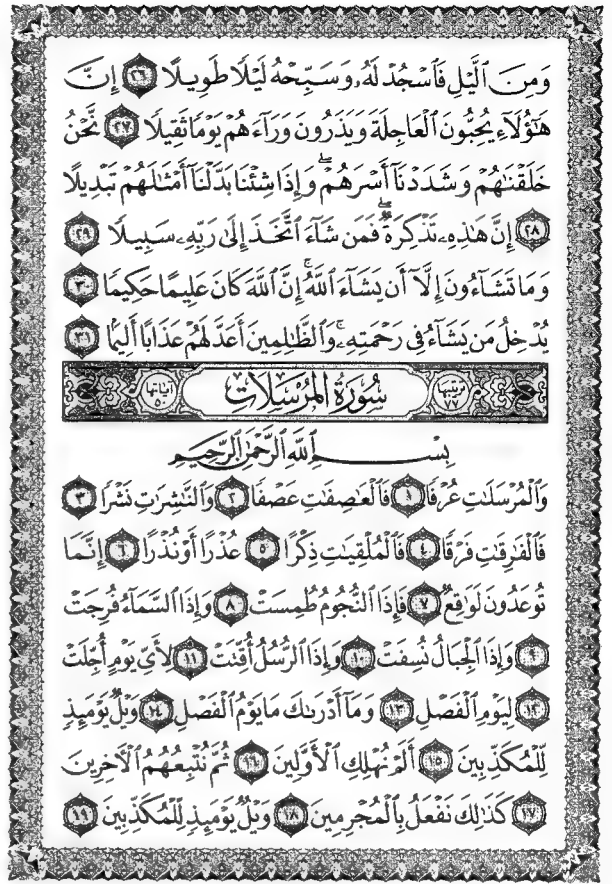 وَمِنَ ٱلَّيْلِ فَٱسْجُدْ لَهُۥ وَسَبِّحْهُ لَيْلًا طَوِيلًا ٢٦ إِنَّ
هَٰٓؤُلَآءِ يُحِبُّونَ ٱلْعَاجِلَةَ وَيَذَرُونَ وَرَآءَهُمْ يَوْمًا ثَقِيلًا ٢٧ نَّحْنُ
خَلَقْنَٰهُمْ وَشَدَدْنَآ أَسْرَهُمْ ۖ وَإِذَا شِئْنَا بَدَّلْنَآ أَمْثَٰلَهُمْ تَبْدِيلًا
٢٨ إِنَّ هَٰذِهِۦ تَذْكِرَةٌ ۖ فَمَن شَآءَ ٱتَّخَذَ إِلَىٰ رَبِّهِۦ سَبِيلًا ٢٩
وَمَا تَشَآءُونَ إِلَّآ أَن يَشَآءَ ٱللَّهُ ۚ إِنَّ ٱللَّهَ كَانَ عَلِيمًا حَكِيمًا ٣٠
يُدْخِلُ مَن يَشَآءُ فِى رَحْمَتِهِۦ ۚ وَٱلظَّٰلِمِينَ أَعَدَّ لَهُمْ عَذَابًا أَلِيمًۢا ٣١
ترتيبها ٧٧ سُورَةُ المُرْسَلَات آياتها ٥٠
بِسْمِ ٱللَّهِ ٱلرَّحْمَٰنِ ٱلرَّحِيمِ
وَٱلْمُرْسَلَٰتِ عُرْفًا ١ فَٱلْعَٰصِفَٰتِ عَصْفًا ٢ وَٱلنَّٰشِرَٰتِ نَشْرًا ٣
فَٱلْفَٰرِقَٰتِ فَرْقًا ٤ فَٱلْمُلْقِيَٰتِ ذِكْرًا ٥ عُذْرًا أَوْ نُذْرًا ٦ إِنَّمَا
تُوعَدُونَ لَوَٰقِعٌ ٧ فَإِذَا ٱلنُّجُومُ طُمِسَتْ ٨ وَإِذَا ٱلسَّمَآءُ فُرِجَتْ
٩ وَإِذَا ٱلْجِبَالُ نُسِفَتْ ١٠ وَإِذَا ٱلرُّسُلُ أُقِّتَتْ ١١ لِأَىِّ يَوْمٍ أُجِّلَتْ
١٢ لِيَوْمِ ٱلْفَصْلِ ١٣ وَمَآ أَدْرَىٰكَ مَا يَوْمُ ٱلْفَصْلِ ١٤ وَيْلٌ يَوْمَئِذٍ
لِّلْمُكَذِّبِينَ ١٥ أَلَمْ نُهْلِكِ ٱلْأَوَّلِينَ ١٦ ثُمَّ نُتْبِعُهُمُ ٱلْـَٔاخِرِينَ
١٧ كَذَٰلِكَ نَفْعَلُ بِٱلْمُجْرِمِينَ ١٨ وَيْلٌ يَوْمَئِذٍ لِّلْمُكَذِّبِينَ ١٩